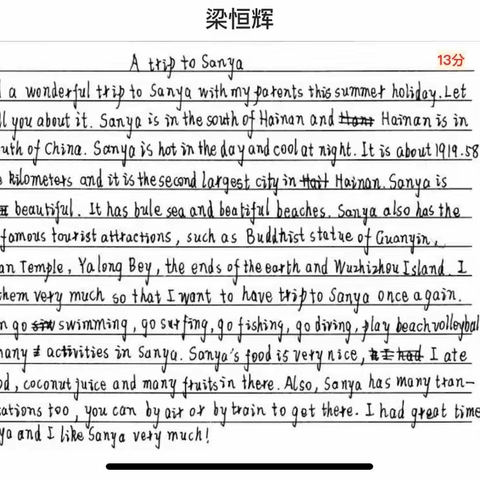 梁恒辉
A trip to Sanya
13分
a wonderful trip to Sanya with my parents this summer holiday. Let
you about it. Sanya is in the south of Hainan and Hainan is in
of China. Sanya is hot in the day and cool at night. It is about 1919.58
kilometers and it is the second largest city in Hainan. Sanya is
beautiful. It has bule sea and beatiful beaches. Sanya also has the
famous tourist attractions, such as Buddhist statue of Guanyin,
Temple, Yalong Bey, the ends of the earth and Wuzhizhou Island. I
them very much so that I want to have trip to Sanya once again.
go swimming, go surfing, go fishing, go diving, play beach volleybal
many activities in Sanya. Sanya's food is very nice, I ate
coconut juice and many fruits in there. Also, Sanya has many tran-
too, you can by air or by train to get there. I had great time
and I like Sanya very much!